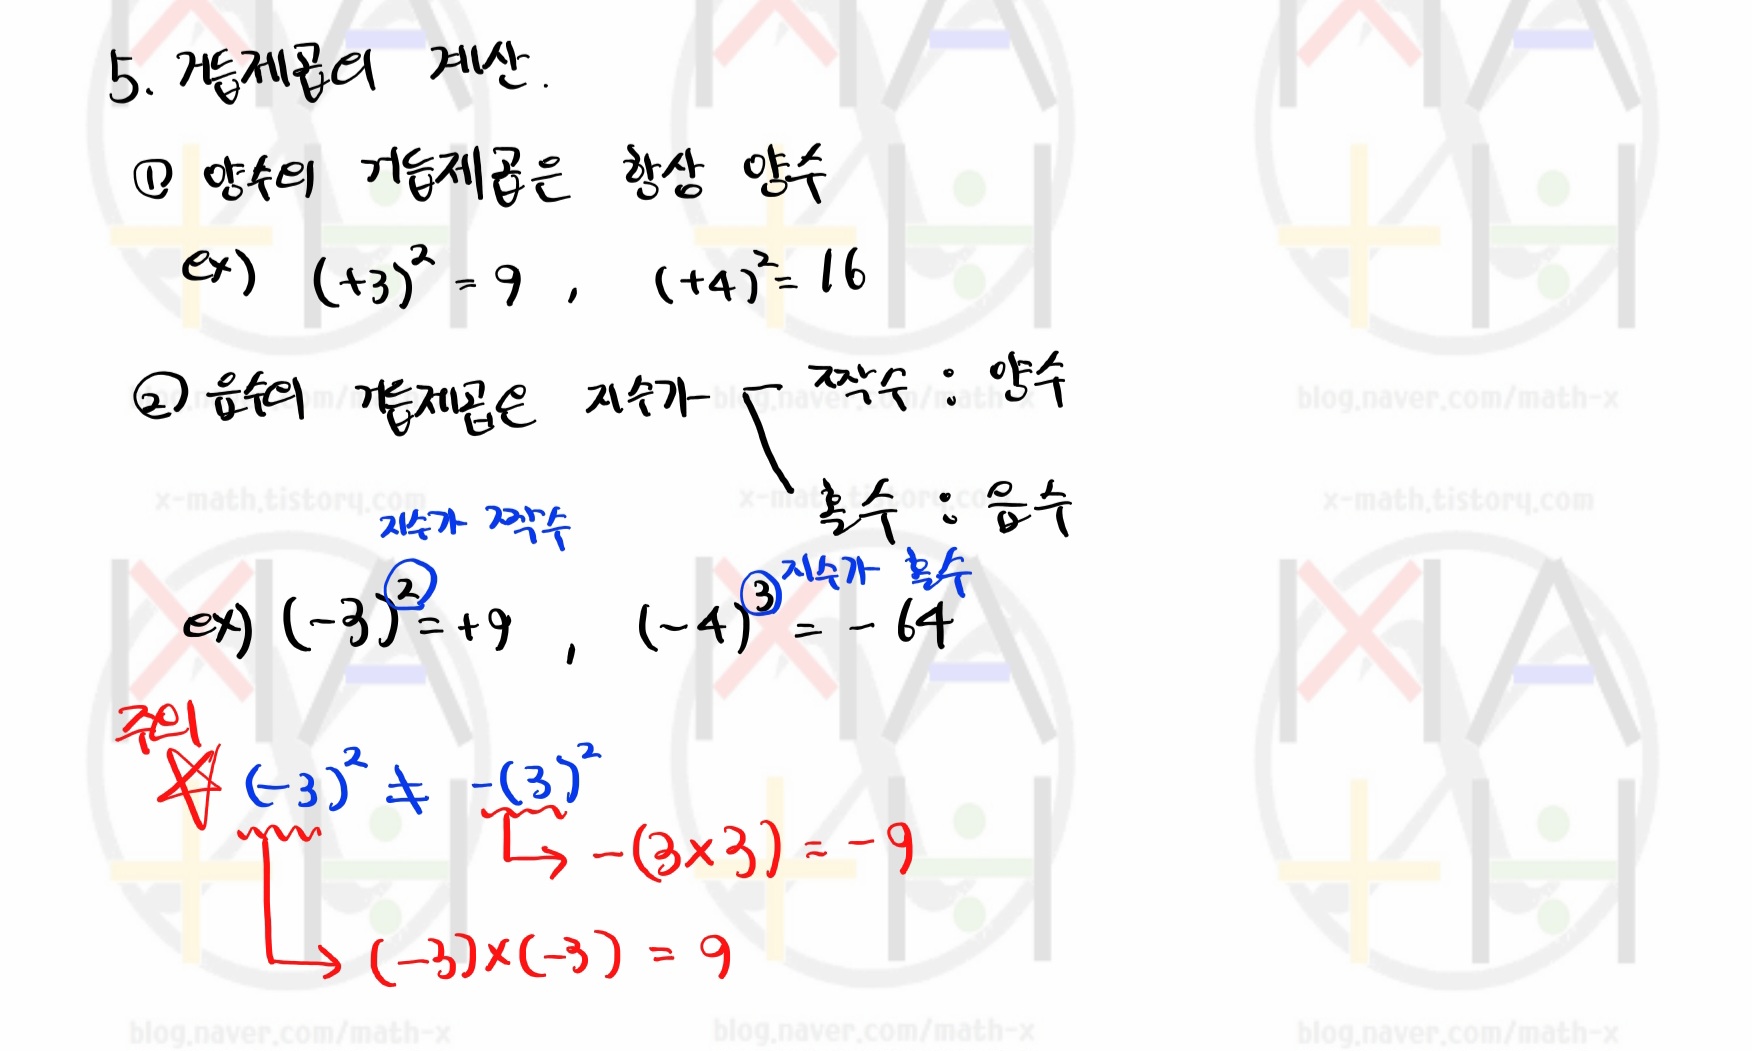 5. 거듭제곱의 계산.
① 양수의 거듭제곱은 항상 양수
ex) (+3)² = 9 , (+4)² = 16
② 음수의 거듭제곱은 지수가 짝수 : 양수
홀수 : 음수
지수가 짝수
지수가 홀수
ex) (-3)² = +9 , (-4)³ = -64
주의
☆ (-3)² ≠ -(3)²
→ -(3×3) = -9
→ (-3)×(-3) = 9
blog.naver.com/math-x blog.naver.com/math-x blog.naver.com/math-x
x-math.tistory.com x-math.tistory.com x-math.tistory.com
blog.naver.com/math-x blog.naver.com/math-x blog.naver.com/math-x